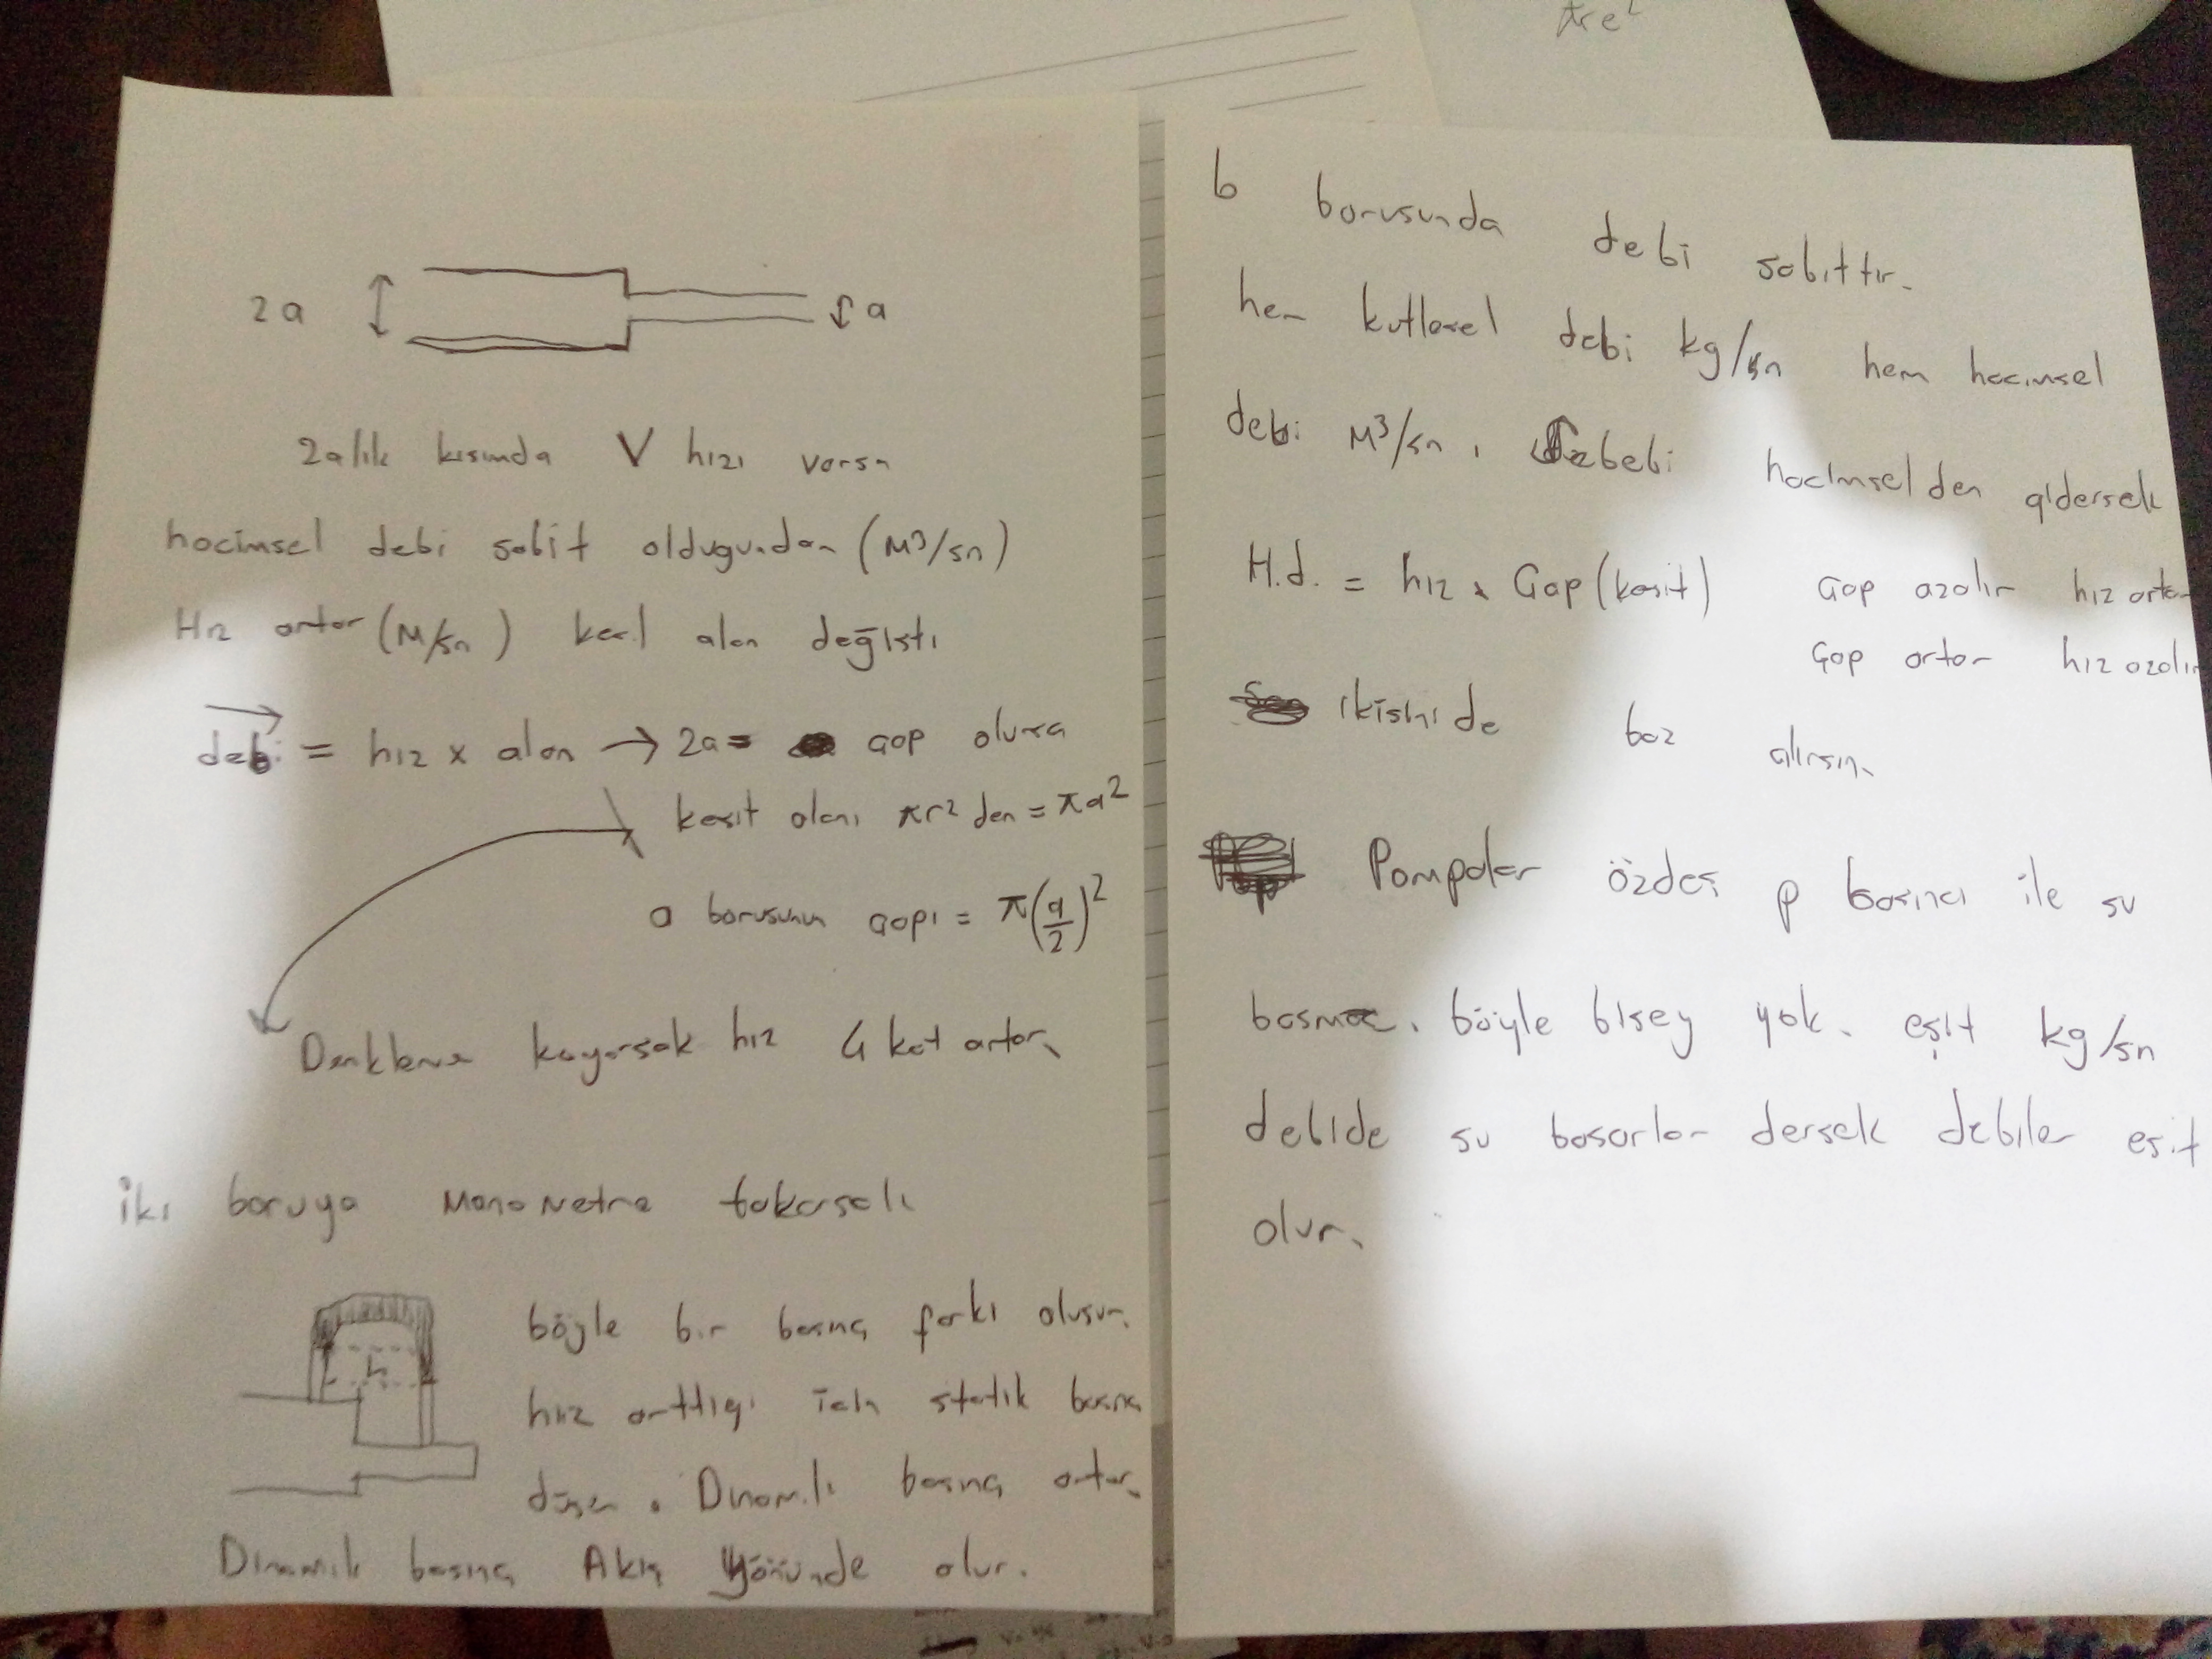 πre²
2a
a
2alık kısımda V hızı varsa
hacimsel debi sabit olduğundan (M³/sn)
Hız artar (M/sn) alan değişti
debi = hız x alan → 2a = çap olursa
kesit alanı πr² den = πa²
a borusunun çapı = π(a/2)²
Denkleme koyarsak hız 4 kat artar.
iki boruya manometre takarsak
h
böyle bir basınç farkı oluşur.
hız arttığı için statik basınç
düşer. Dinamik basınç artar.
Dinamik basınç Akış yönünde olur.
b borusunda debi sabittir.
hem kütlesel debi kg/sn hem hacimsel
debi M³/sn. hacimselden gidersek
H.d. = hız x Çap (kesit) Çap azalır hız artar
Çap artar hız azalır
ikisini de baz alırsın.
Pompalar özdeş p basıncı ile su
basmaz. böyle bişey yok. eşit kg/sn
debide su basarlar dersek debiler eşit
olur.